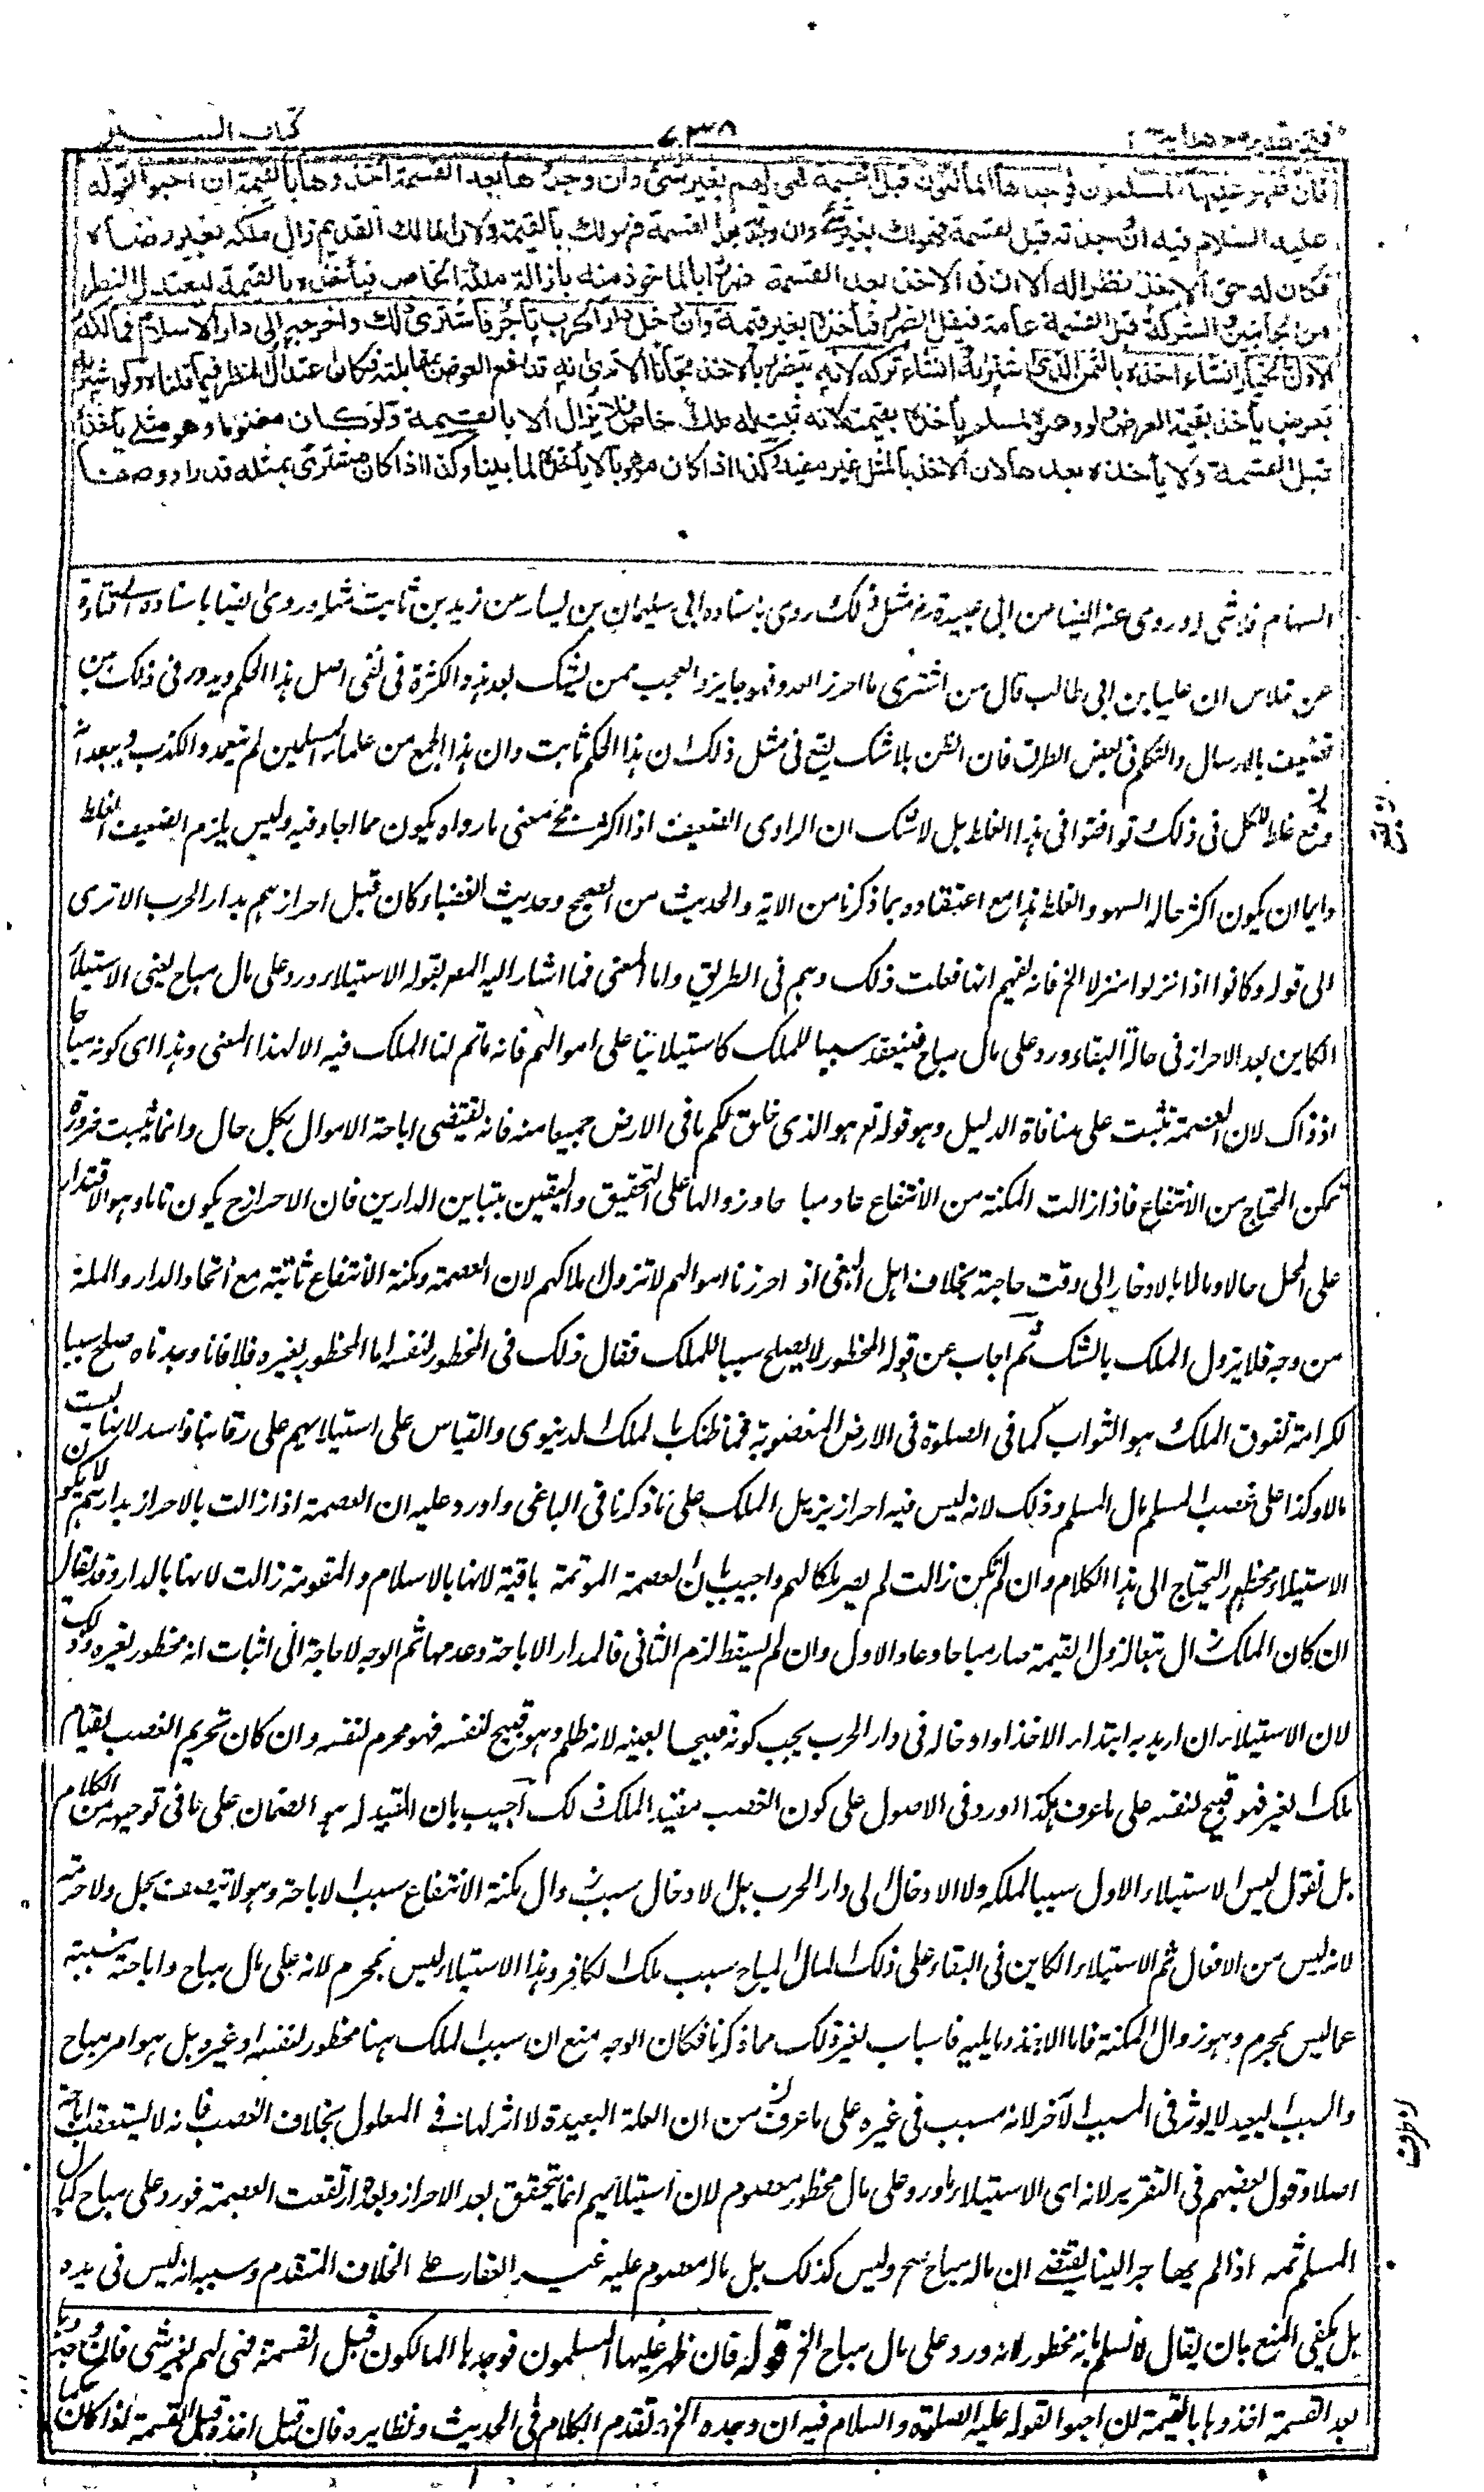 فتح قدیر مع هدایة ۷۳۸ کتاب السیر
فان ظهر علیها المسلمون فوجدها المالکون قبل القسمة فهی لهم بغیر شیٔ وان وجدوها بعد القسمة اخذوها بالقیمة ان احبوا لقوله
علیه السلام فیه ان وجدته قبل القسمة فهو لك بغیر شیٔ وان وجدته بعد القسمة فهو لك بالقیمة ولان المالك القدیم زال ملکه بغیر رضاه
فکان له حق الاخذ نظرا له الا ان فی الاخذ بعد القسمة ضررا بالماخوذ منه بازالة ملکه الخاص فیأخذه بالقیمة لیعتدل النظر
من الجانبین والشرکة قبل القسمة عامة فیقل الضرر فیأخذه بغیر قیمة وان دخل دار الحرب تاجر فاشتری ذلك واخرجه الی دار الاسلام فمالکه
الاول بالخیار ان شاء اخذه بالثمن الذی اشتراه وان شاء ترکه لانه یتضرر بالاخذ مجانا الا تری انه قد دفع العوض بمقابلته فکان اعتدال النظر فیما قلناه ولو اشتراه
بعرض یأخذه بقیمة العرض ولو وهبوه لمسلم یأخذه بقیمته لانه ثبت له ملك خاص فلا یزال الا بالقیمة ولو کان مغنوما وهو مثلی یأخذه
قبل القسمة ولا یأخذه بعدها لان الاخذ بالمثل غیر مفید وکذا اذا کان موهوبا لا یأخذه لما بینا وکذا اذا کان مشتری بمثله قدرا ووصفا
السهام فلا شی له وروی عنه ایضا من ابی عبیدة رض مثل ذلک روی باسناده الی سلیمان بن یسار من زید بن ثابت مثله وروی ایضا باسناده الی قتادة
عن خلاس ان علیا بن ابی طالب قال من اشتری ما احرز العدو فهو جایز والعجب ممن یشک بعد هذه الکثرة فی نفی اصل هذا الحکم ویدور فی ذلک بین
تضعیف بالارسال والتکلم فی بعض الطرق فان الظن بلا شک یقع فی مثل ذلک ان هذا الحکم ثابت وان هذا الجمع من علماء المسلمین لم یتعمدوا الکذب ویبعد انه
وقع غلط للکل فی ذلک توافقوا فی هذا الغلط بل لا شک ان الراوی الضعیف اذا کثر مجیٔ معنی ما رواه یکون مما اجاد فیه ولیس یلزم الضعیف الغلط
دایما ان یکون اکثر حاله السهو والغلط هذا مع اعتضاده بما ذکرنا من الآیة والحدیث من الصحیح وحدیث العضباء کان قبل احرازهم بدار الحرب الا تری
الی قوله وکانوا اذا نزلوا منزلا الخ فانه یفهم انها فعلت ذلک وهم فی الطریق واما المعنی فما اشار الیه المص بقوله الاستیلاء ورد علی مال مباح یعنی الاستیلاء
الکاین بعد الاحراز فی حالة البقاء ورد علی مال مباح فینعقد سببا للملک کاستیلائنا علی اموالهم فانه ما تم لنا الملک فیه الا لهذا المعنی وهذا ای کونه مباحا
اذ ذاک لان العصمة تثبت علی منافاة الدلیل وهو قوله تع هو الذی خلق لکم ما فی الارض جمیعا منه فانه یقتضی اباحة الاموال بکل حال وانما ثبت ضرورة
تمکن المحتاج من الانتفاع فاذا زالت المکنة من الانتفاع عاد مباحا وزوالها علی التحقیق والیقین بتباین الدارین فان الاحراز ح یکون تاما وهو الاقتدار
علی المحل حالا ومالا بالادخار الی وقت حاجته بخلاف اهل البغی اذ احرزنا اموالهم لا تزول املاکهم لان العصمة ومکنة الانتفاع ثابتة مع اتحاد الدار والملة
من وجه فلا یزول الملک بالشک ثم اجاب عن قوله المحظور لا یصلح سببا للملک فقال ذلک فی المحظور لنفسه اما المحظور لغیره فلا فانا وجدناه صلح سببا
لکرامة تفوق الملک هو الثواب کما فی الصلوة فی الارض المغصوبة فما ظنک بالملک الدنیوی والقیاس علی استیلائهم علی رقابنا فاسد لانها لیست
مالا وکذا علی غصب المسلم مال المسلم وذلک لانه لیس فیه احراز یزیل الملک علی ما ذکرنا فی الباغی واورد علیه ان العصمة اذا زالت بالاحراز بدارهم لا یکون
الاستیلاء محظورا لیحتاج الی هذا الکلام وان لم تکن زالت لم یصر ملکا لهم واجیب بان العصمة الموثمة باقیة لانها بالاسلام والمقومة زالت لانها بالدار وقد یقال
ان کان الملک زال تبعا لزوال القیمة صار مباحا وعاد الاول وان لم یسقط لزم الثانی فالمدار الاباحة وعدمها ثم الوجه لا حاجة الی اثبات انه محظور لغیره وذلک
لان الاستیلاء ان ارید به ابتداء الاخذ او ادخاله فی دار الحرب یجب کونه قبیحا لعینه لانه ظلم وهو قبیح لنفسه فهو محرم لنفسه وان کان تحریم الغصب لقیام
ملک الغیر فهو قبیح لنفسه علی ما عرف هکذا اورد فی الاصول علی کون الغصب مفید الملک فلذلک اجیب بان المفید له هو الضمان علی ما فی توجیهه من الکلام
بل نقول لیس الاستیلاء الاول سببا لملکه ولا الادخال الی دار الحرب بل الادخال سبب زوال مکنة الانتفاع سبب الاباحة وهو لا یتصف بحل ولا حرمة
لانه لیس من الافعال ثم الاستیلاء الکاین فی البقاء علی ذلک المال المباح سبب ملک الکافر وهذا الاستیلاء لیس بمحرم لانه علی مال مباح واباحته مسببة
عما لیس بمحرم وهو زوال المکنة فاما الاخذ وما یلیه فاسباب لغیر ذلک مما ذکرنا فکان الوجه منع ان سبب الملک هنا محظور لنفسه او غیره بل هو امر مباح
والسبب البعید لا یوثر فی المسبب الآخر لانه مسبب فی غیره علی ما عرف من ان العلة البعیدة لا اثر لها فی المعلول بخلاف الغصب فانه لا یستعقب اباحة
اصلا وقول بعضهم فی التقریر لانه ای الاستیلاء ما ورد علی مال محظور معصوم لان استیلائهم انما یتحقق بعد الاحراز وبعده ارتفعت العصمة فورد علی مباح کمال
المسلم ثمه اذا لم یهاجر الینا یقتضی ان ماله مباح صح ولیس کذلک بل ماله معصوم علیه غیر العقار علی الخلاف المتقدم وسببه انه لیس فی یده
بل یکفی المنع بان یقال لا نسلم بانه محظور لانه ورد علی مال مباح الخ قوله فان ظهر علیها المسلمون فوجدها المالکون قبل القسمة فهی لهم بغیر شی فان وجدوها
بعد القسمة اخذوها بالقیمة ان احبوا لقوله علیه الصلوة والسلام فیه ان وجده الخ تقدم الکلام فی الحدیث ونظایره فان قیل اخذه قبل القسمة